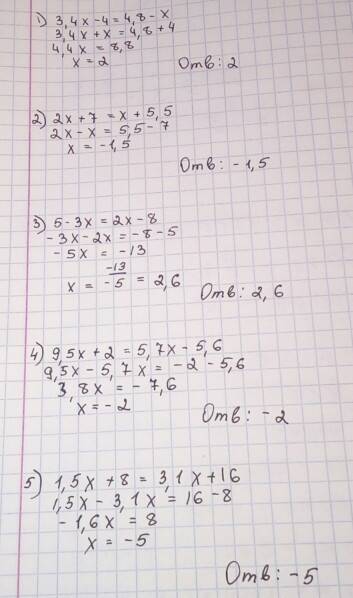 1) 3,4x-4=4,8-x
3,4x+x=4,8+4
4,4x=8,8
x=2
Отв: 2
2) 2x+7=x+5,5
2x-x=5,5-7
x=-1,5
Отв: -1,5
3) 5-3x=2x-8
-3x-2x=-8-5
-5x=-13
x = -13/-5 = 2,6
Отв: 2,6
4) 9,5x+2=5,7x-5,6
9,5x-5,7x=-2-5,6
3,8x=-7,6
x=-2
Отв: -2
5) 1,5x+8=3,1x+16
1,5x-3,1x=16-8
-1,6x=8
x=-5
Отв: -5